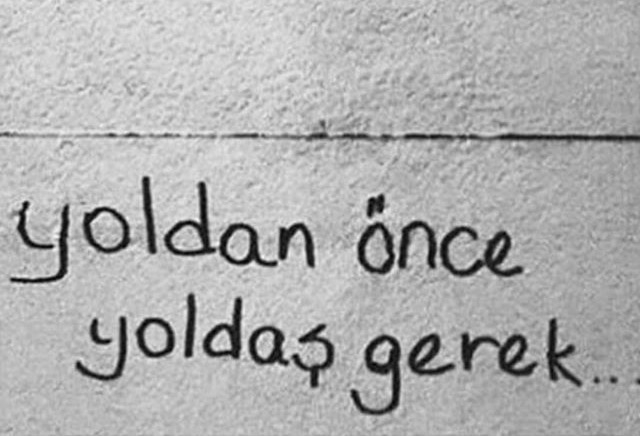 yoldan önce
yoldaş gerek...